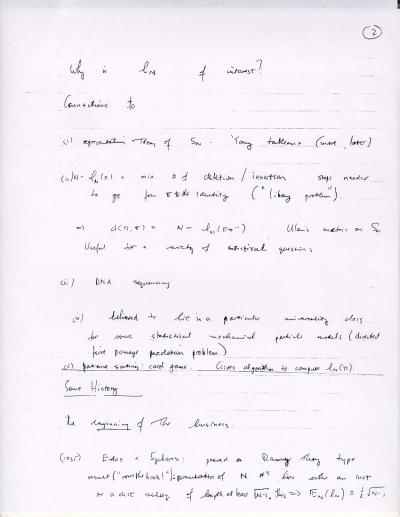 2
Why is l_N of interest?
Connections to
(i) representation theory of S_N. Young tableaux (more later)
(ii) N - l_N(π) = min # of deletion / insertion steps needed
to go from π to the identity ("library problem").
⇒ d(π,σ) = N - l_N(πσ⁻¹) Ulam's metric on S_N
Useful for a variety of statistical questions
(iii) DNA sequencing
(iv) believed to lie in a particular universality class
for some statistical mechanical particle models (directed
first passage percolation problem)
(v) patience sorting: card game. Gives algorithm to compute l_N(π).
Some History
The beginning of the business.
Erdos + Szekeres: proved a Ramsey Theory type
result ("from the book!"): permutation of N #'s has either an incr
or a decr of length at least √N-1, thus ⇒ E_N(l_N) ≥ ½√N-1